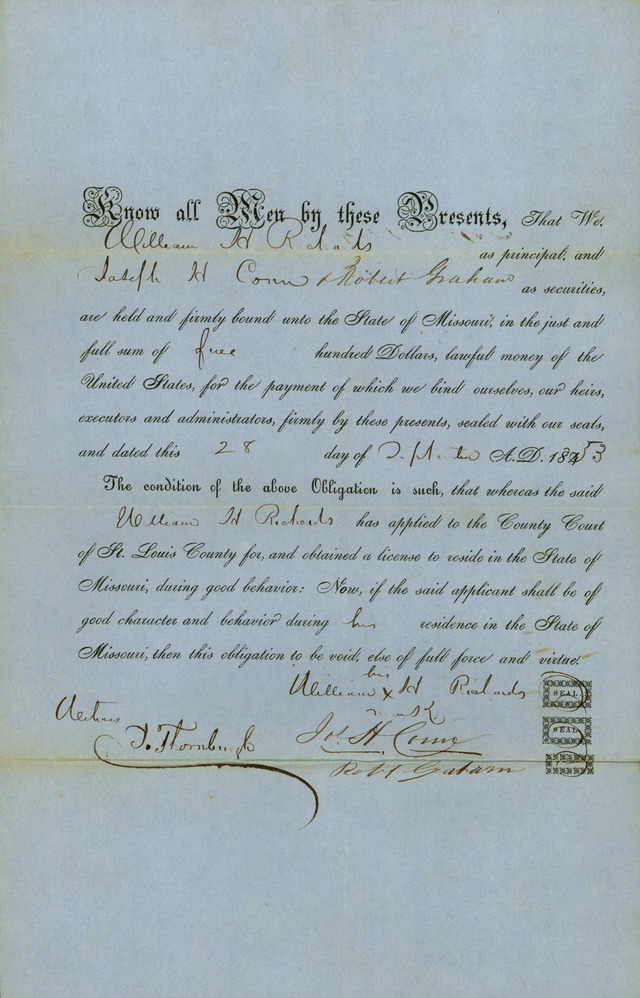 Know all Men by these Presents, That We,
William H Richards as principal, and
Joseph H Conn & Robert Graham as securities,
are held and firmly bound unto the State of Missouri, in the just and
full sum of five hundred Dollars, lawful money of the
United States, for the payment of which we bind ourselves, our heirs,
executors and administrators, firmly by these presents, sealed with our seals,
and dated this 28 day of September A.D. 1853
The condition of the above Obligation is such, that whereas the said
William H Richards has applied to the County Court
of St. Louis County for, and obtained a license to reside in the State of
Missouri, during good behavior: Now, if the said applicant shall be of
good character and behavior during his residence in the State of
Missouri, then this obligation to be void, else of full force and virtue.
his
William x H Richards SEAL
mark
Jos H Conn SEAL
T. Thornburgh
Robt Graham